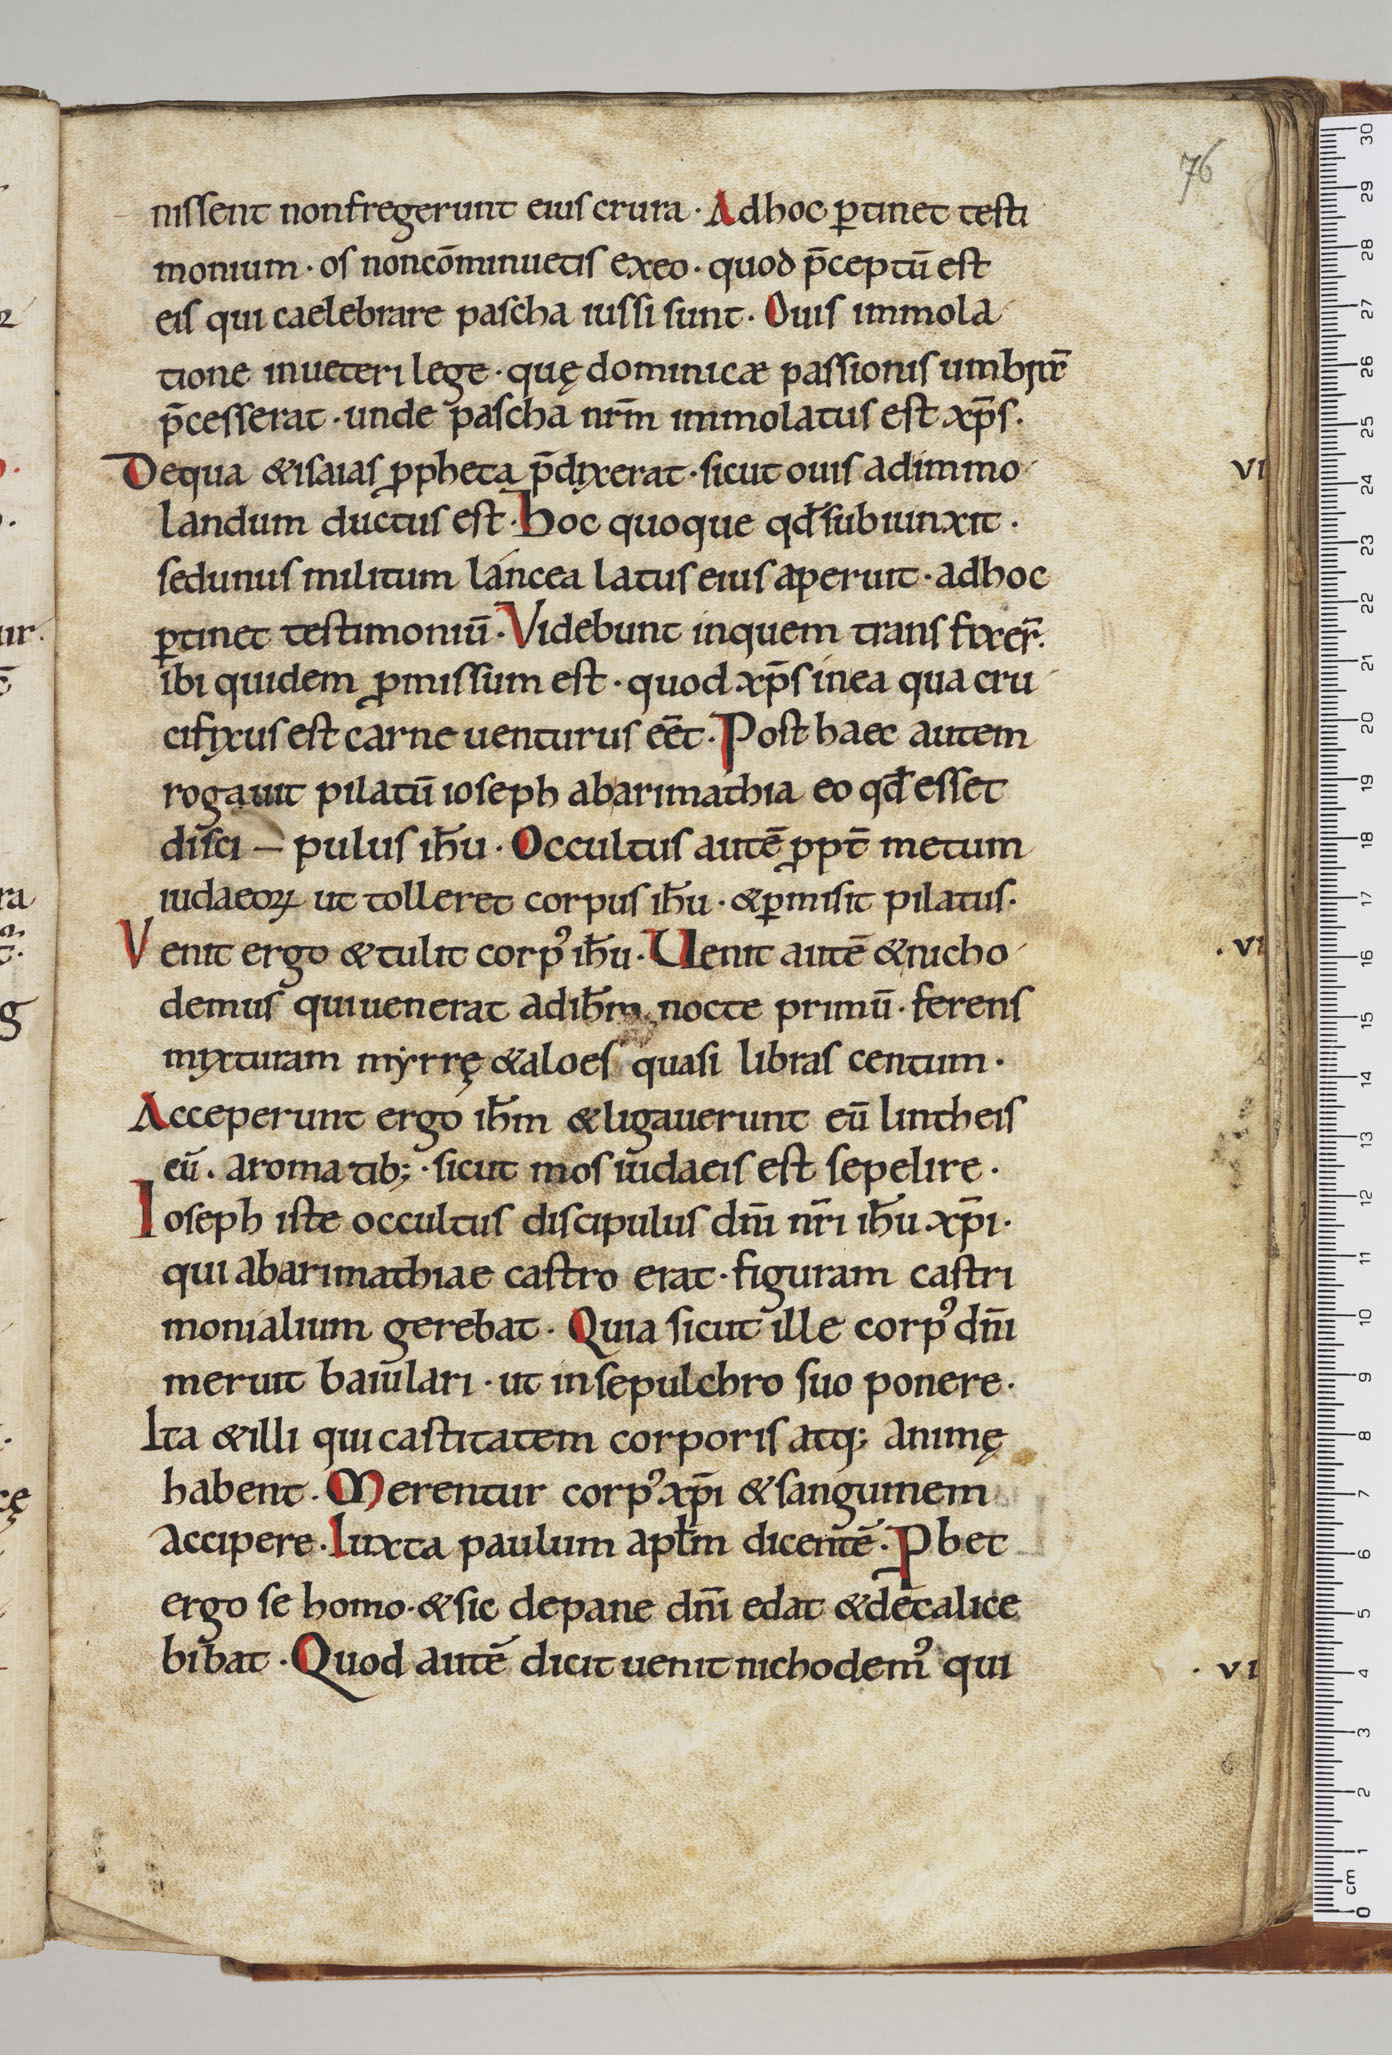 76
nissent nonfregerunt eius crura · Adhoc ꝑtinet testi
monium · os noncōminuetis exeo · quod p̄ceptū est
eis qui caelebrare pascha iussi sunt · Ouis immola
tione inueteri lege · quę dominicæ passionis umbra
p̄cesserat · unde pascha nr̄m immolatus est xp̄s ·
Dequa &isaias ꝓpheta p̄dixerat · sicut ouis adimmo
landum ductus est · Hoc quoque qđ subiunxit ·
sedunus militum lancea latus eius aperuit · adhoc
ꝑtinet testimoniū · Videbunt inquem transfixer̄ ·
ibi quidem ꝓmissum est · quod xp̄s inea qua cru
cifixus est carne uenturus eēt · Post haec autem
rogauit pilatū ioseph abarimathia eo qđ esset
disci — pulus ih̄u · Occultus autē ꝓpt̄ metum
iudaeoꝝ ut tolleret corpus ih̄u · &ꝑmisit pilatus ·
Venit ergo &tulit corpꝰ ih̄u · Uenit autē &nicho
demus quiuenerat adih̄m nocte primū · ferens
mixturam myrrę &aloes quasi libras centum ·
Acceperunt ergo ih̄m &ligauerunt eū lintheis
eū · aromatib; · sicut mos iudaeis est sepelire ·
Ioseph iste occultus discipulus dn̄i nr̄i ih̄u xp̄i ·
qui abarimathiae castro erat · figuram castri
monialium gerebat · Quia sicut ille corpꝰ dn̄i
meruit baiulari · ut insepulchro suo ponere ·
Ita &illi qui castitatem corporis atq; animę
habent · Merentur corpꝰ xp̄i &sanguinem
accipere · Iuxta paulum apłm dicentē · Pbet
ergo se homo · &sic depane dn̄i edat &decalice
bibat · Quod autē dicit uenit nichodemꝰ qui
vi
· vi
· vi